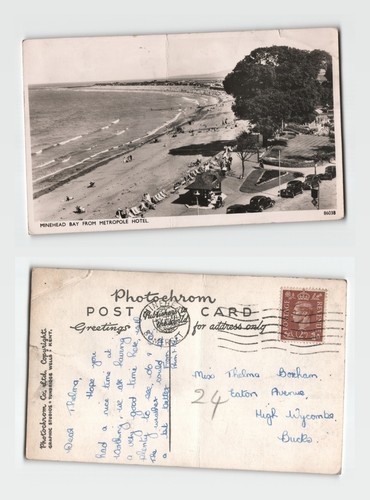 MINEHEAD BAY FROM METROPOLE HOTEL.
86038
Photochrom
POST CARD
Greetings
for address only
Photochrom Co. Ltd. Copyright.
GRAPHIC STUDIOS - TUNBRIDGE WELLS - KENT.
Dear Thelma,
Hope you
had a nice time at
we are having
a very good time here, with
plenty to see, do &
The weather could be
a bit better
Miss Thelma Boxham
24 Eaton Avenue,
High Wycombe,
Bucks.